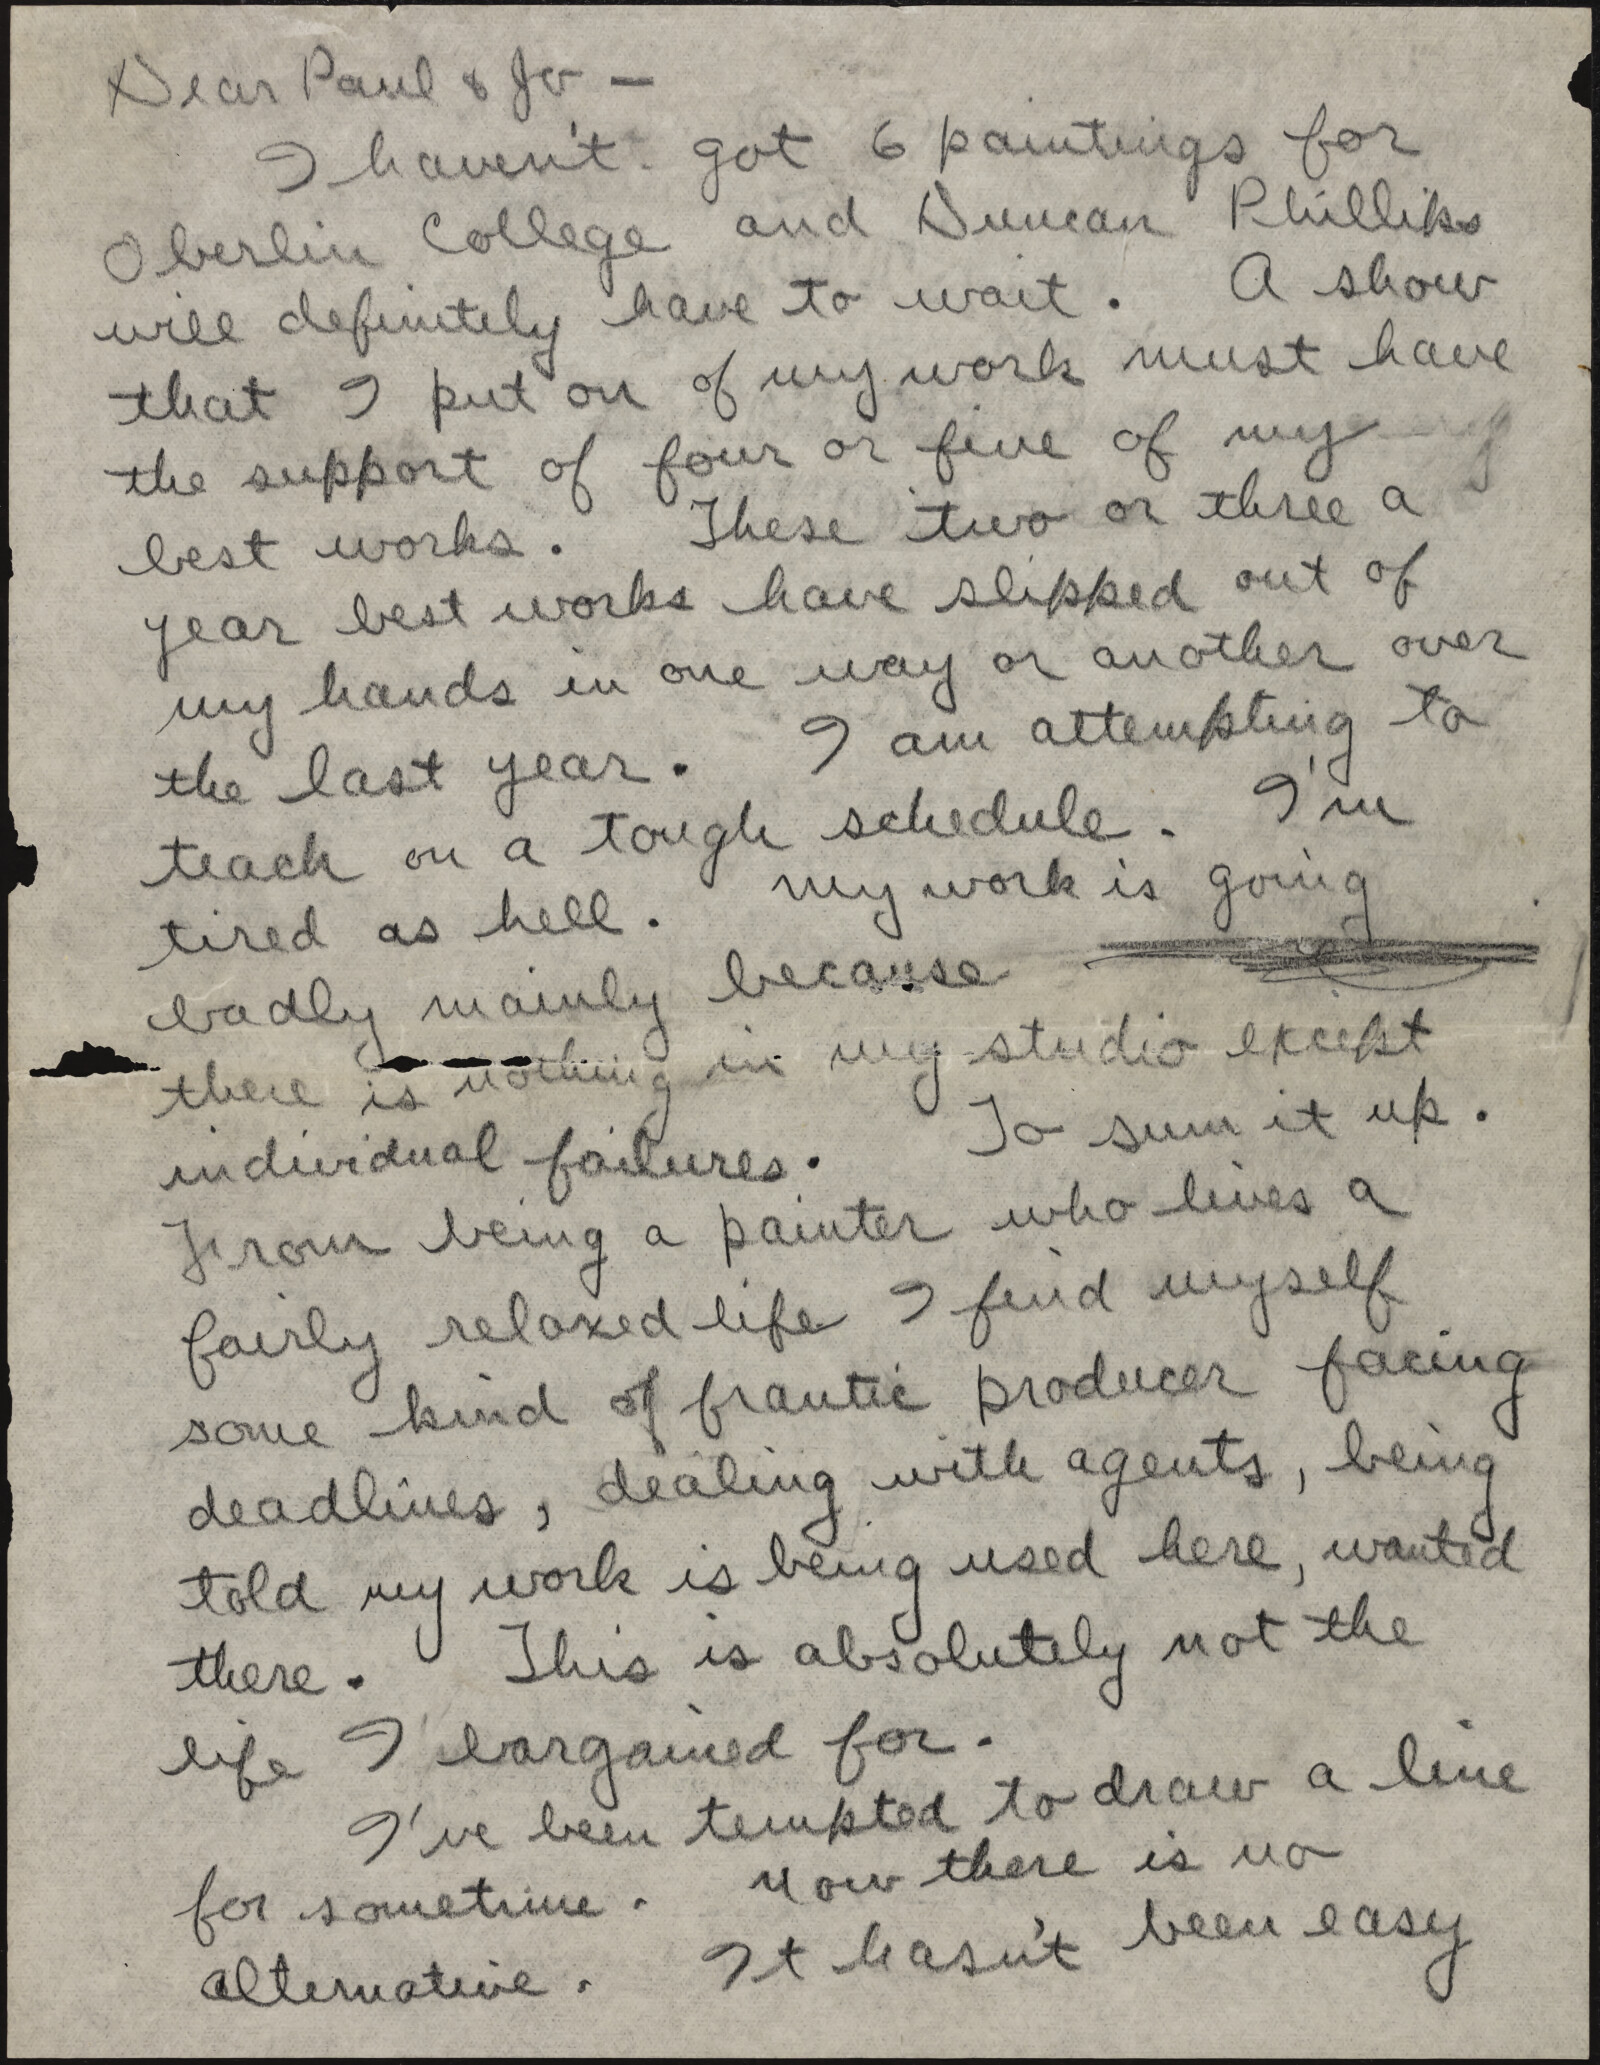 Dear Paul & Jo —
I haven't got 6 paintings for
Oberlin College and Duncan Phillips
will definitely have to wait. A show
that I put on of my work must have
the support of four or five of my
best works. These two or three a
year best works have slipped out of
my hands in one way or another over
the last year. I am attempting to
teach on a tough schedule. I'm
tired as hell. My work is going
badly mainly because
there is nothing in my studio except
individual failures. To sum it up.
From being a painter who lives a
fairly relaxed life I find myself
some kind of frantic producer facing
deadlines, dealing with agents, being
told my work is being used here, wanted
there. This is absolutely not the
life I bargained for.
I've been tempted to draw a line
for sometime. Now there is no
alternative. It hasn't been easy